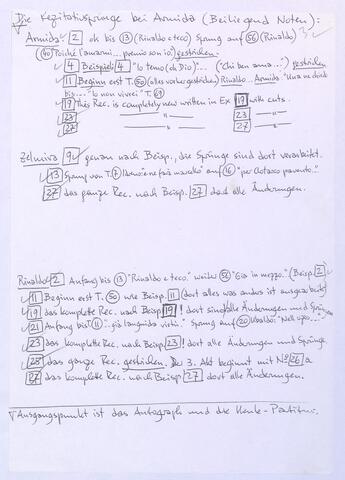 Die Rezitativsprünge bei Armida (Beiliegend Noten):
Armida 2 ab bis 13 (Rinaldo e teco) Sprung auf 56 (Rinaldo)
40 Poiché l'amarmi... premio son io.) gestrichen.
4 Beispiel: 4 "Io temo (oh Dio)"... ("Chi ben ama...") gestrichen
11 Beginn erst T. 50 (alles vorher gestrichen) Rinaldo... Armida
bis..." Io non vivrei" T.
19 This Rec. is completely new written in Ex 19 with cuts.
23 " 23 "
27 " 27 "
Zelmira 9 genau nach Beisp., die Sprünge sind dort verarbeitet.
13 Sprung von T. 7 auf 16 "per Clotarco pavento."
27 das ganze Rec. nach Beisp. 27 dort alle Änderungen.
Rinaldo 2 Anfang bis 13 "Rinaldo e teco." weiter 56 "Già in mezzo." (Beisp. 2)
11 Beginn erst T. 50 wie Beisp. 11 (dort alles was anders ist ausgearbeitet)
19 das komplette Rec. nach Beisp. 19! dort sind alle Änderungen und Sprünge
21 Anfang bis 11 "...già languida virtù." Sprung auf 20 Ubaldo:
23 das komplette Rec. nach Beisp. 23! dort alle Änderungen.
28 das ganze Rec. gestrichen. Der 3. Akt beginnt mit No 26 a
27 das komplette Rec. nach Beisp. 27 dort alle Änderungen.
Ausgangspunkt ist das Autograph und die Henle-Partitur.